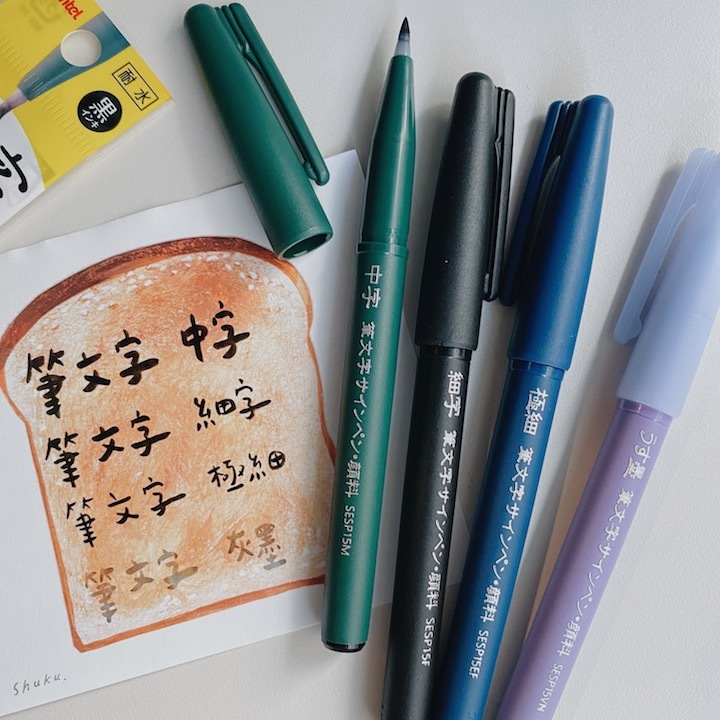 ntel
耐水
黒
インキ
筆文字 中字
筆文字 細字
筆文字 極細
筆文字 灰墨
shuku.
中字 筆文字サインペン・顔料 SESP15M
細字 筆文字サインペン・顔料 SESP15F
極細 筆文字サインペン・顔料 SESP15EF
うす墨 筆文字サインペン・顔料 SESP15VM